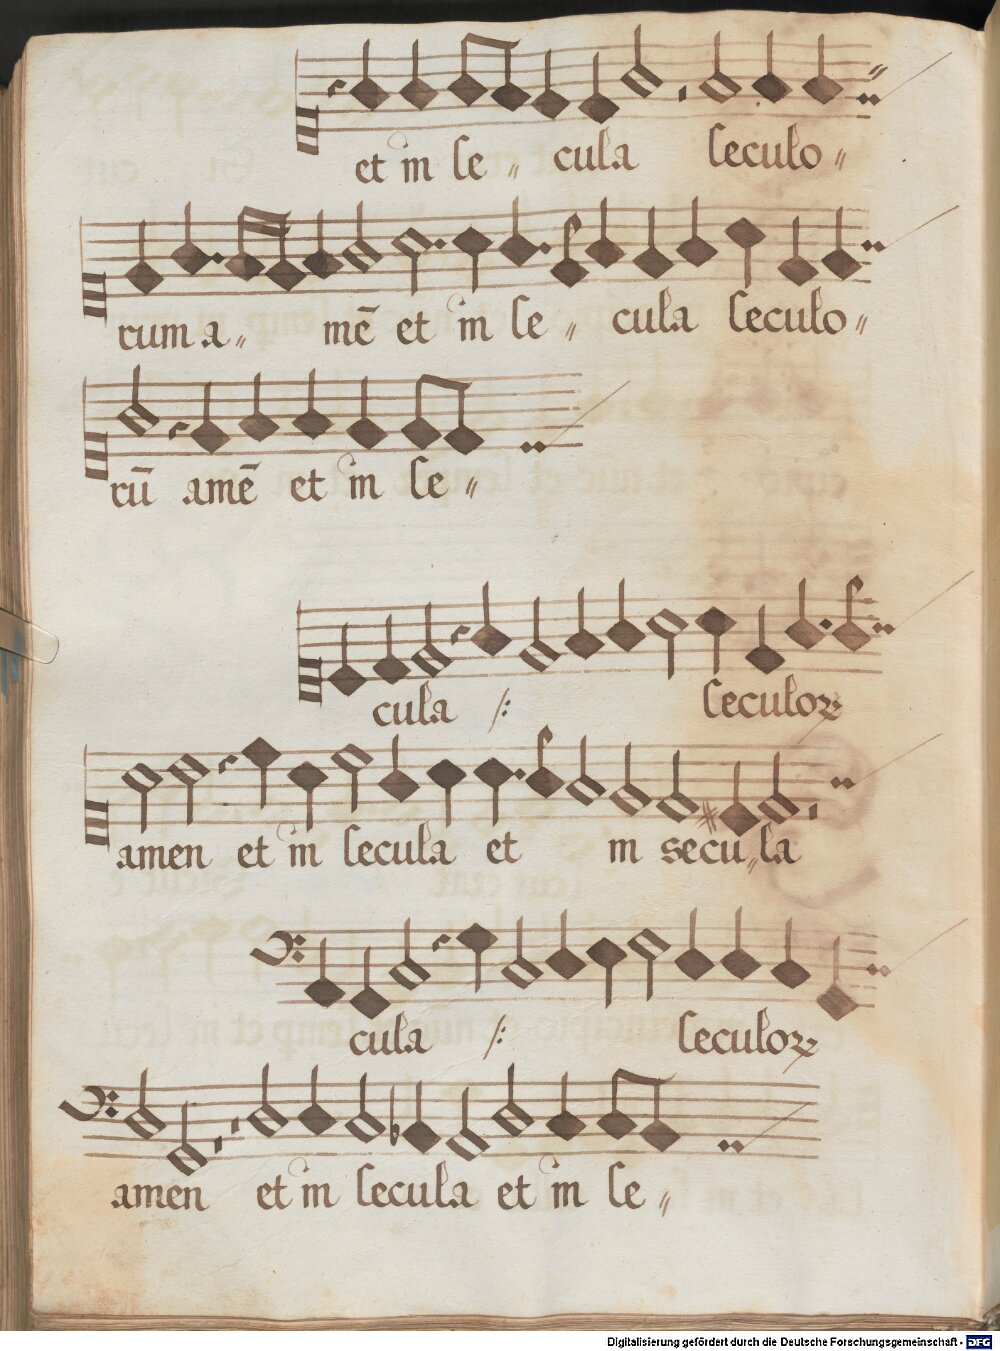 et in se〃 cula seculo〃
rum a〃 mē et in se〃 cula seculo〃
rū amē et in se〃
cula /: seculoꝝ
amen et in secula et in secu〃la
cula /: seculoꝝ
amen et in secula et in se〃
Digitalisierung gefördert durch die Deutsche Forschungsgemeinschaft - DFG